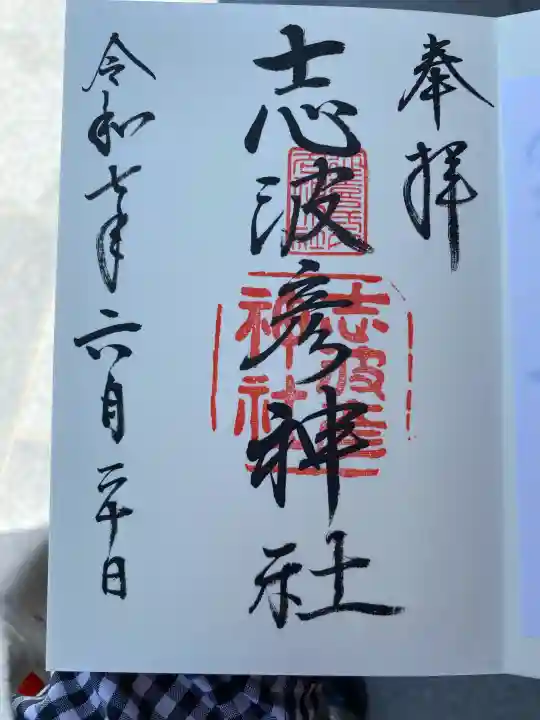 奉拝
志波彦神社
志波彦
神社
令和七年六月二十日